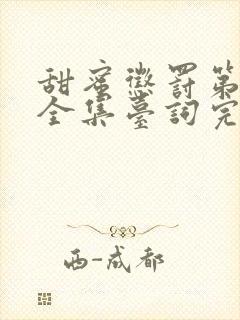 甜蜜懲罰第
全集臺詞完
西-成都